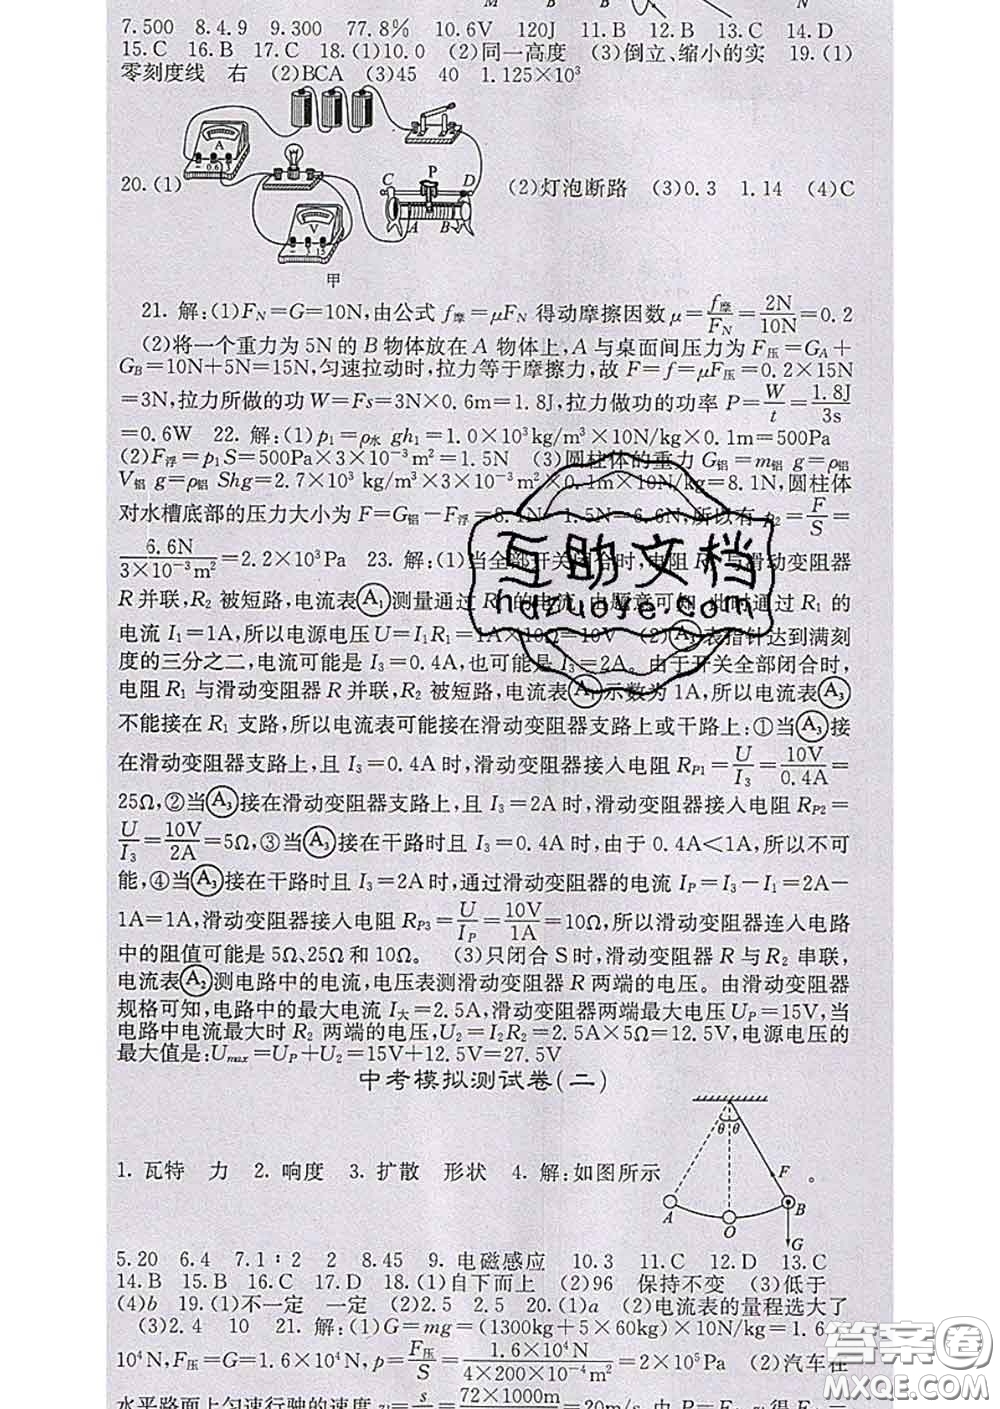 M B B N
7.500 8.4.9 9.300 77.8% 10.6V 120J 11.B 12.B 13.C 14.D
15.C 16.B 17.C 18.(1)10.0 (2)同一高度 (3)倒立、缩小的实 19.(1)
零刻度线 右 (2)BCA (3)45 40 1.125×10³
20.(1) (2)灯泡断路 (3)0.3 1.14 (4)C
A
- 0.6 3
C P D
A B
V
- 3 15
甲
21. 解:(1)F_N=G=10N,由公式 f摩=μF_N 得动摩擦因数 μ=f摩/F_N=2N/10N=0.2
(2)将一个重力为5N的B物体放在A物体上,A与桌面间压力为F压=G_A+
G_B=10N+5N=15N,匀速拉动时,拉力等于摩擦力,故F=f=μF压=0.2×15N
=3N,拉力所做的功W=Fs=3N×0.6m=1.8J,拉力做功的功率 P=W/t=1.8J/3s
=0.6W 22. 解:(1)p₁=ρ水 gh₁=1.0×10³kg/m³×10N/kg×0.1m=500Pa
(2)F浮=p₁S=500Pa×3×10⁻³m²=1.5N (3)圆柱体的重力 G铝=m铝 g=ρ铝
V铝 g=ρ铝 Shg=2.7×10³kg/m³×3×10⁻³m²×0.1m×10N/kg=8.1N,圆柱体
对水槽底部的压力大小为 F=G铝-F浮=8.1N-1.5N=6.6N,所以有 p₂=F/S=
6.6N/3×10⁻³m²=2.2×10³Pa 23. 解:(1)当全部开关闭合时,电阻 R₁ 与滑动变阻器
R并联,R₂ 被短路,电流表Ⓐ₁测量通过 R₁ 的电流,由题意可知,此时通过 R₁ 的
电流 I₁=1A,所以电源电压U=I₁R₁=1A×10Ω=10V (2)Ⓐ₃表指针达到满刻
度的三分之二,电流可能是 I₃=0.4A,也可能是 I₃=2A。由于开关全部闭合时,
电阻 R₁ 与滑动变阻器R并联,R₂ 被短路,电流表Ⓐ₁示数为1A,所以电流表Ⓐ₃
不能接在 R₁ 支路,所以电流表可能接在滑动变阻器支路上或干路上:①当Ⓐ₃接
在滑动变阻器支路上,且 I₃=0.4A时,滑动变阻器接入电阻 R_P1=U/I₃=10V/0.4A=
25Ω,②当Ⓐ₃接在滑动变阻器支路上,且 I₃=2A时,滑动变阻器接入电阻 R_P2=
U/I₃=10V/2A=5Ω,③当Ⓐ₃接在干路时且 I₃=0.4A时,由于0.4A<1A,所以不可
能,④当Ⓐ₃接在干路时且 I₃=2A时,通过滑动变阻器的电流 I_P=I₃-I₁=2A-
1A=1A,滑动变阻器接入电阻 R_P3=U/I_P=10V/1A=10Ω,所以滑动变阻器连入电路
中的阻值可能是5Ω、25Ω和10Ω。 (3)只闭合S时,滑动变阻器R与R₂ 串联,
电流表Ⓐ₂测电路中的电流,电压表测滑动变阻器R两端的电压。由滑动变阻器
规格可知,电路中的最大电流 I大=2.5A,滑动变阻器两端最大电压U_P=15V,当
电路中电流最大时 R₂ 两端的电压,U₂=I₂R₂=2.5A×5Ω=12.5V,电源电压的
最大值是:U_max=U_P+U₂=15V+12.5V=27.5V
中考模拟测试卷(二)
1. 瓦特 力 2. 响度 3. 扩散 形状 4. 解:如图所示 。
θ θ
F
A O B
G
5.20 6.4 7.1∶2 2 8.45 9. 电磁感应 10.3 11.C 12.D 13.C
14.B 15.B 16.C 17.D 18.(1)自下而上 (2)96 保持不变 (3)低于
(4)b 19.(1)不一定 一定 (2)2.5 2.5 20.(1)a (2)电流表的量程选大了
(3)2.4 10 21. 解:(1)G=mg=(1300kg+5×60kg)×10N/kg=1.6
10⁴N,F压=G=1.6×10⁴N,p=F压/S=1.6×10⁴N/4×200×10⁻⁴m²=2×10⁵Pa (2)汽车在
水平路面上匀速行驶的速度 v=s/=72×1000m/=20m/s
互助文档
hdzuoye.com
答案圈
MXQE.COM